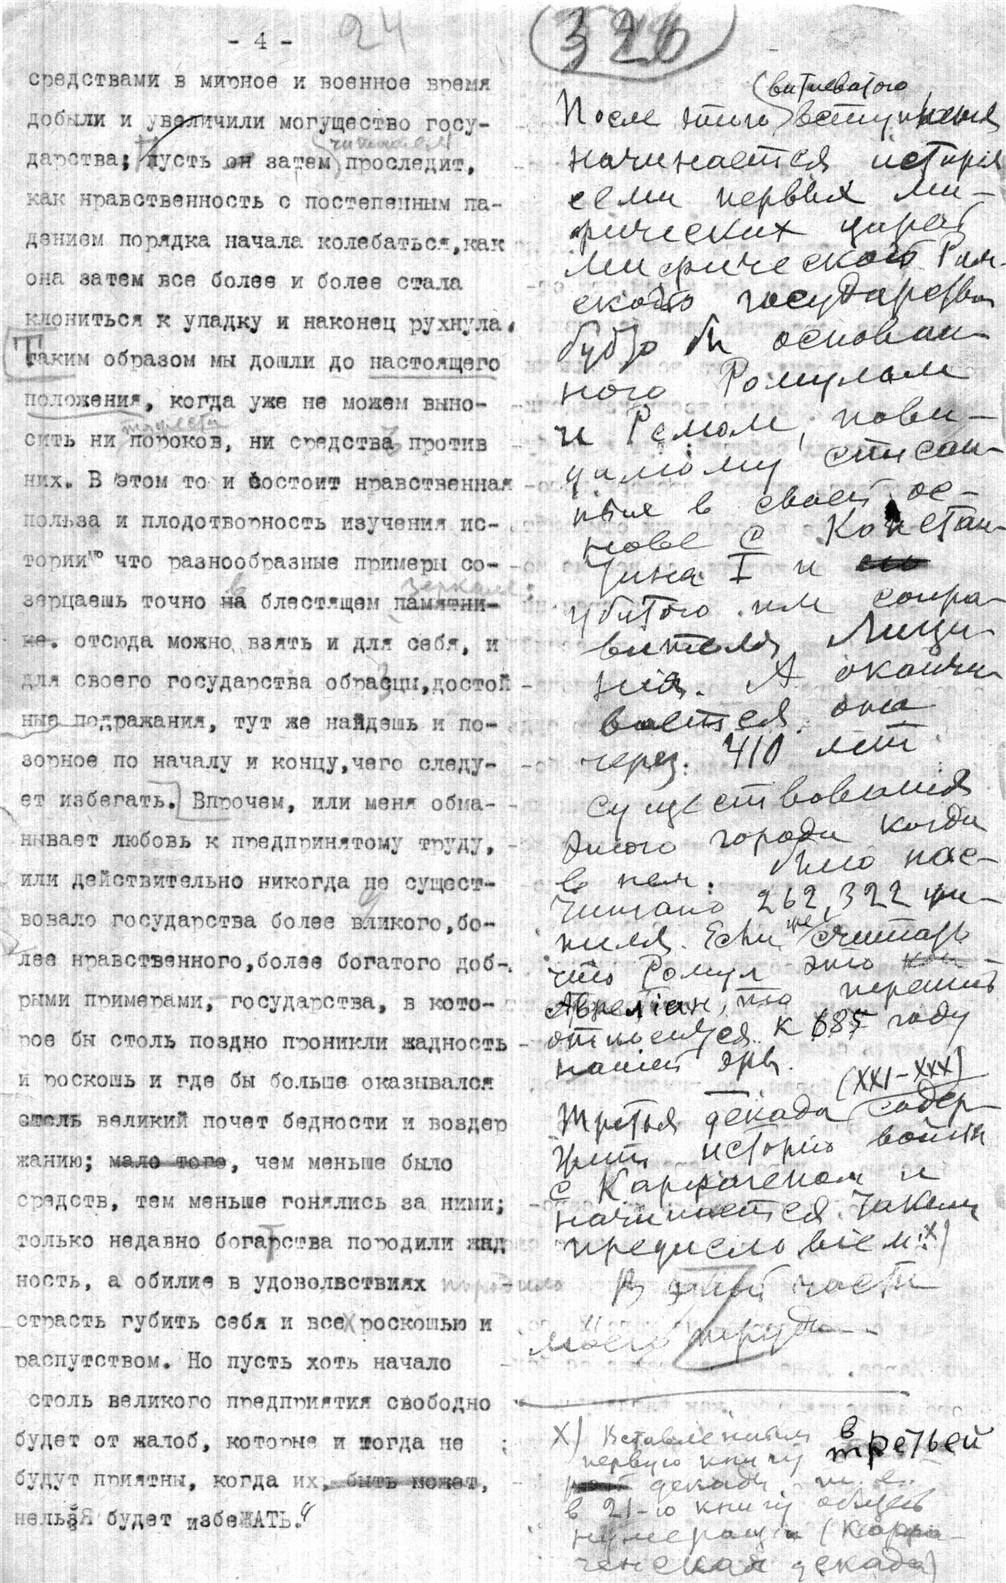 - 4 -
24
326
средствами в мирное и военное время
добыли и увеличили могущество госу-
дарства; пусть он затем читатель проследит,
как нравственность с постепенным па-
дением порядка начала колебаться, как
она затем все более и более стала
клониться к упадку и наконец рухнула.
Таким образом мы дошли до настоящего
положения, когда уже не можем выно-
сить ни пороков, ни средства против
них. В этом то и состоит нравственная
польза и плодотворность изучения ис-
тории, что разнообразные примеры со-
зерцаешь точно в блестящем зеркале:
отсюда можно взять и для себя, и
для своего государства образцы, достой-
ные подражания, тут же найдешь и по-
зорное по началу и концу, чего следу-
ет избегать. Впрочем, или меня обма-
нывает любовь к предпринятому труду,
или действительно никогда не сущест-
вовало государства более великого, бо-
лее нравственного, более богатого доб-
рыми примерами, государства, в кото-
рое бы столь поздно проникли жадность
и роскошь и где бы больше оказывался
столь великий почет бедности и воздер
жанию; мало того, чем меньше было
средств, тем меньше гонялись за ними;
только недавно богатства породили жад
ность, а обилие в удовольствиях породило
страсть губить себя и все роскошью и
распутством. Но пусть хоть начало
столь великого предприятия свободно
будет от жалоб, которые и тогда не
будут приятны, когда их, быть может,
нельзя будет избежАТЬ."
После этого витиеватого вступления
начинается история
семи первых ми-
фических царей
мифического Рим-
ского государства
будто бы основан-
ного Ромулом
и Ремом, повидимому списан-
ные в своей ос-
нове с Констан-
тина I и
убитого им сопра-
вителя Лици-
ния. А оканчи-
вается она
через 410 лет
существования
этого города когда
в нем было нас-
читано 262,322 жи-
теля. Если же считать
что Ромул это
Аврелиан, то
относится к 685 году
нашей эры.
Третья декада (XXI-XXX) содер-
жит историю войны
с Карфагеном и
начинается таким
предисловием: х)
В этой части
моего труда
Х) Вставленным в
первую книгу третьей
декады т.е.
в 21-ю книгу общей
нумерации (Карфа-
генская декада)